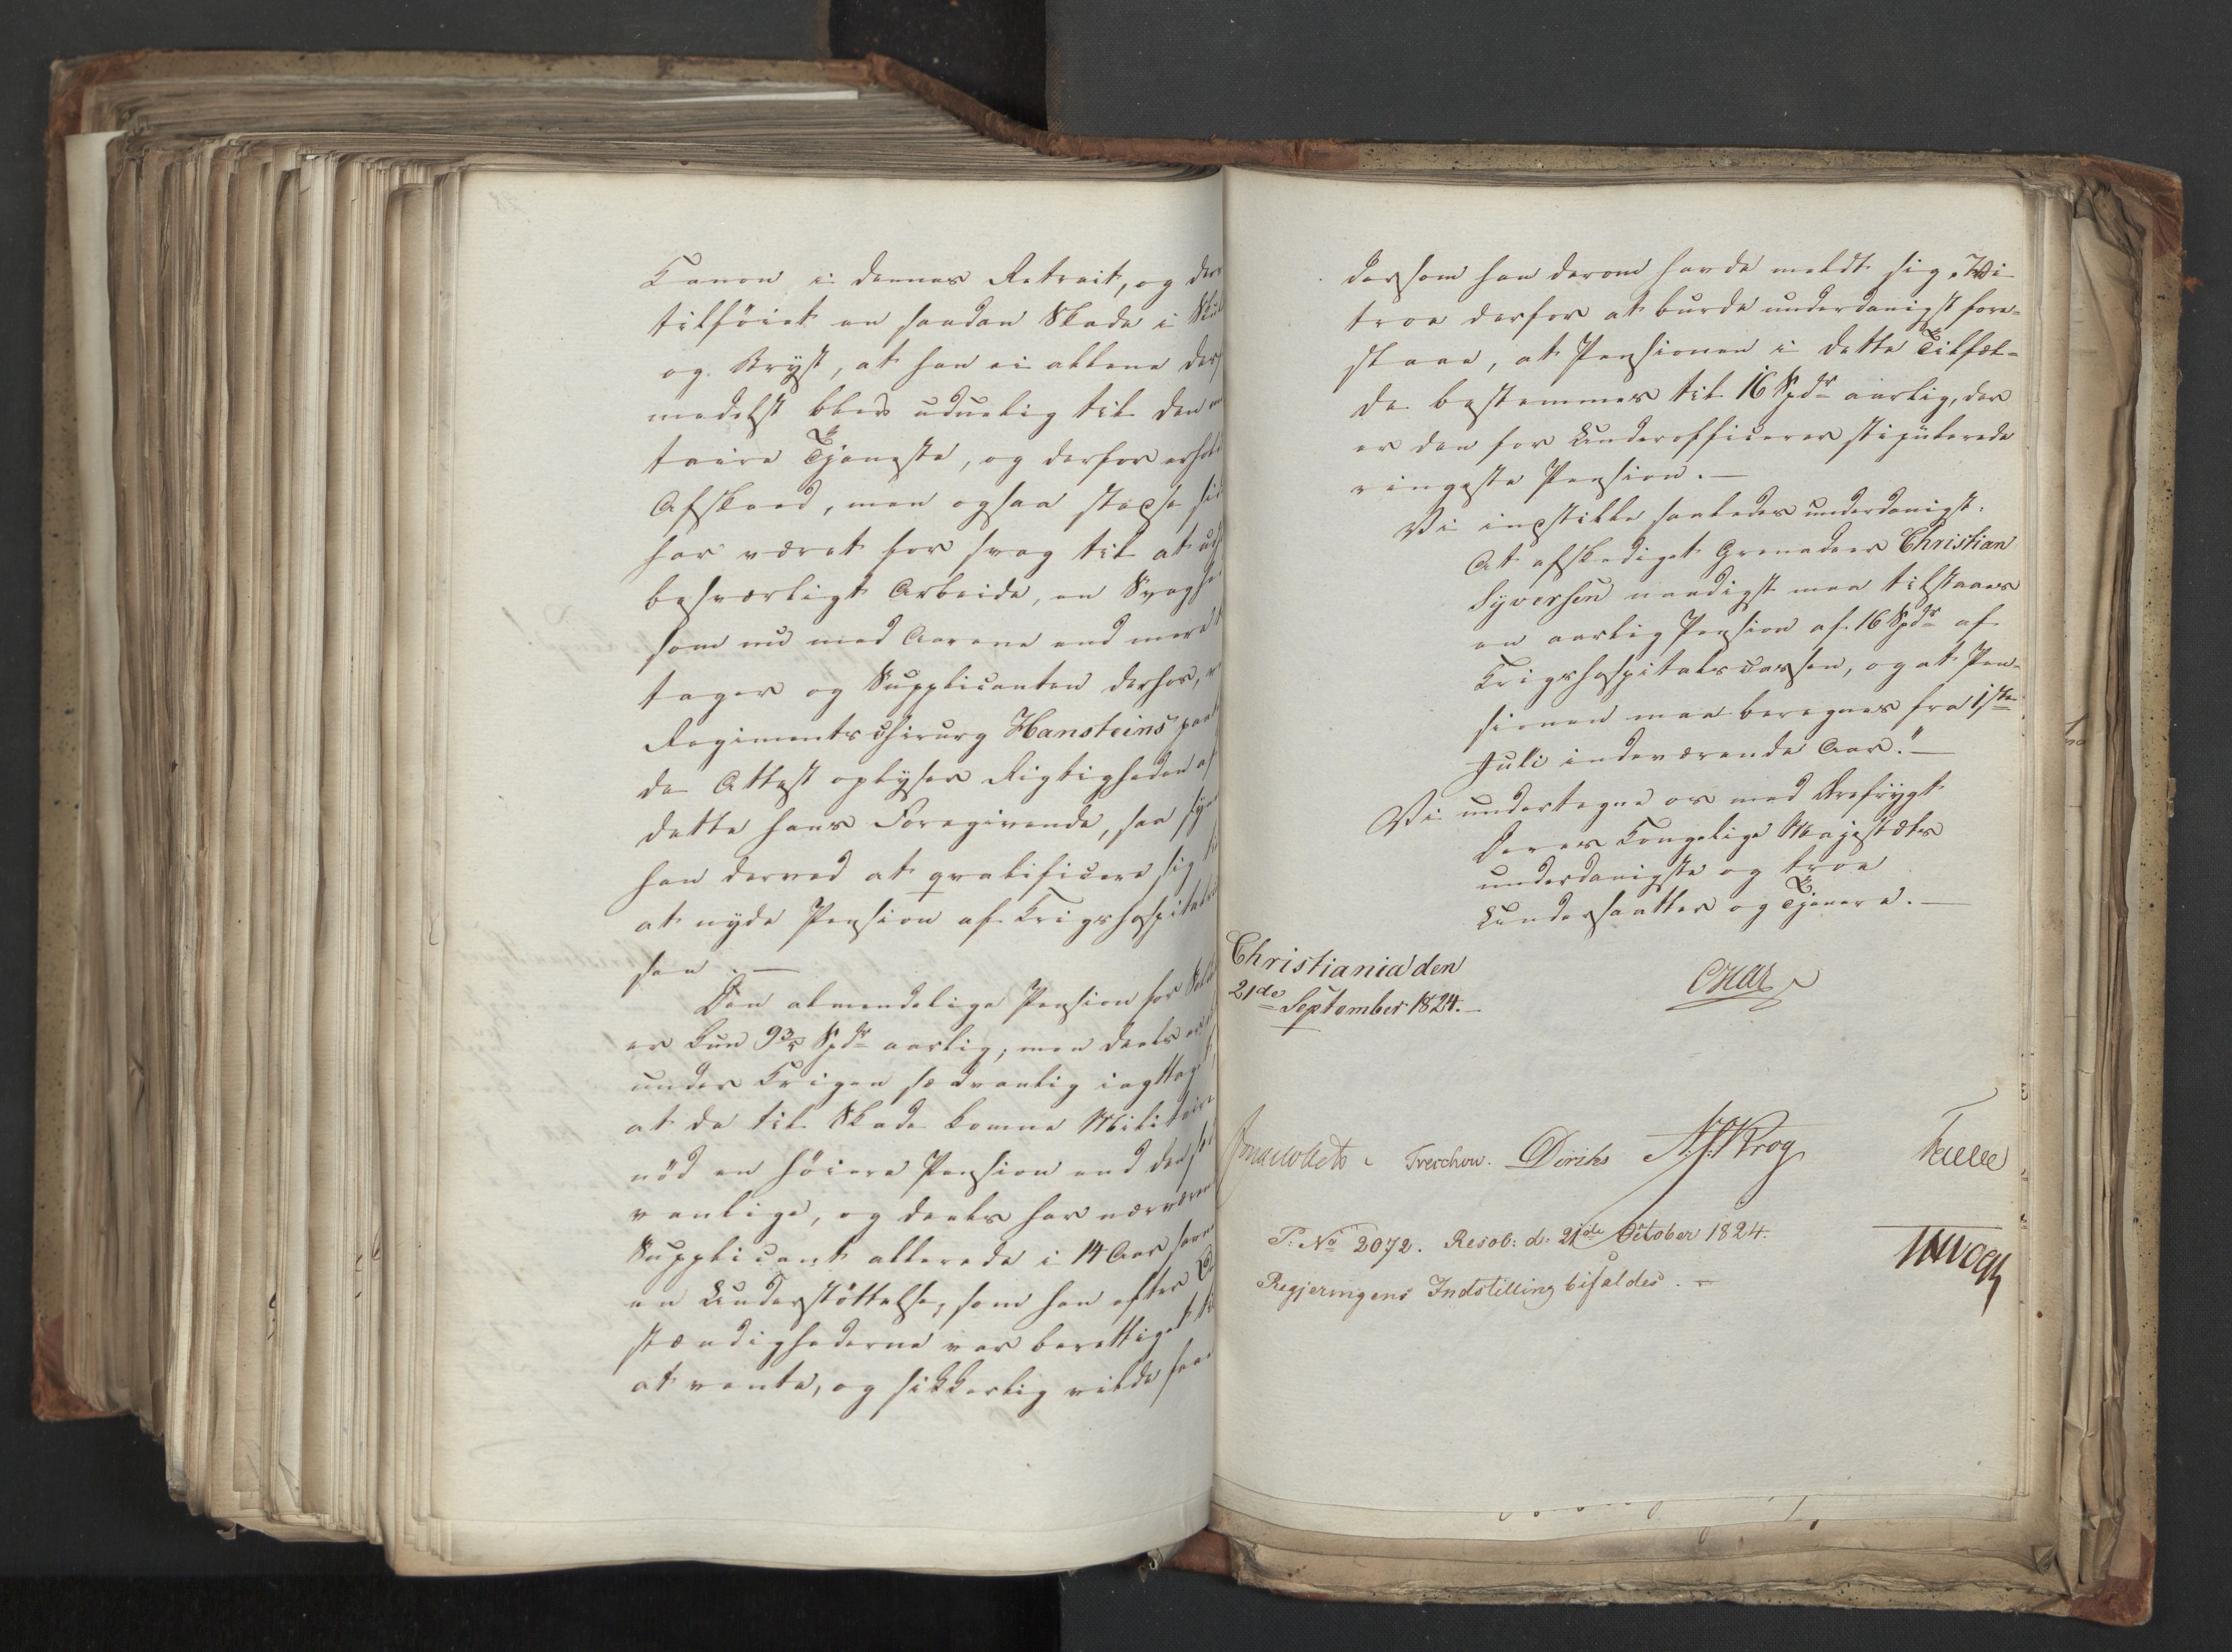 Kanon i dennes Retrait, og der
tilføiet en saadan Skade i
og Bryst, at han ei allene der
medelst blev uduelig til den
taire Tjeneste, og derfor erhol
Afskeed, men ogsaa stedse
har været for svag til at ud
besværligt Arbeide, en Svaghe
som nu med Aarene end mere
tager og Supplicanten derhos,
Regimentschirurg Hansteins paa
de Attest oplyser Rigtigheden af
dette hans Foregivende, saa syn
han derved at qvalificere sig til
at nyde Pension af Krigshospitals
sen. —
Den almindelige Pension for Sol
er kun 9 3/5 Spdr aarlig; men deels
under Krigen sædvanlig iagttag
at de til Skade komne Militaire
nød en høiere Pension end den
vanlige, og deels har nærværen
Supplicant allerede i 14 Aar savn
en Understøttelse, som han efter
stændighederne var berettiget til
at vente, og sikkerlig vilde faae
dersom han derom havde meldt sig. Vi
troe derfor at burde underdanigst fore-
staae, at Pensionen i dette Tilfæl-
de bestemmes til 16 Spdr aarlig, der
er den for Underofficerer stipulerede
ringeste Pension. —
Vi indstille saaledes underdanigst:
At afskediget Grenadeer Christian
Syversen naadigst maa tilstaaes
en aarlig Pension af 16 Spdr af
Krigshospitalscassen, og at Pen-
sionen maa beregnes fra 1ste
Juli indeværende Aar." —
Vi undertegne os med Ærefrygt
Deres Kongelige Majestæts
underdanigste og troe
Undersaatter og Tjenere. —
Christiania den
21de September 1824. —
Treschow. Diriks N.J. Krog
P: No 2072. Resol: d: 21de October 1824.
Regjeringens Indstilling bifaldes. —